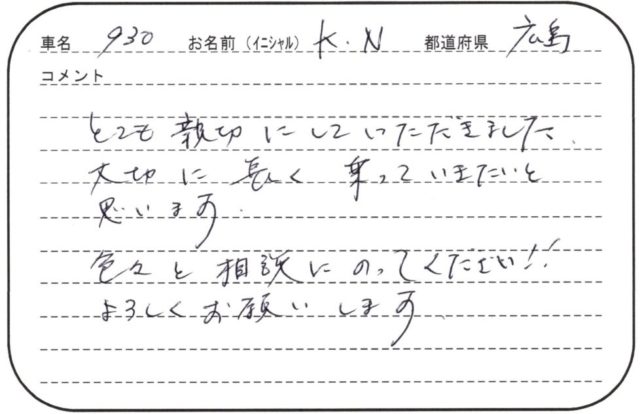 車名 930 お名前（ｲﾆｼｬﾙ） K.N 都道府県 広島
コメント
とても親切にしていただきました。
大切に長く乗っていきたいと
思います。
色々と相談にのってください!!
よろしくお願いします